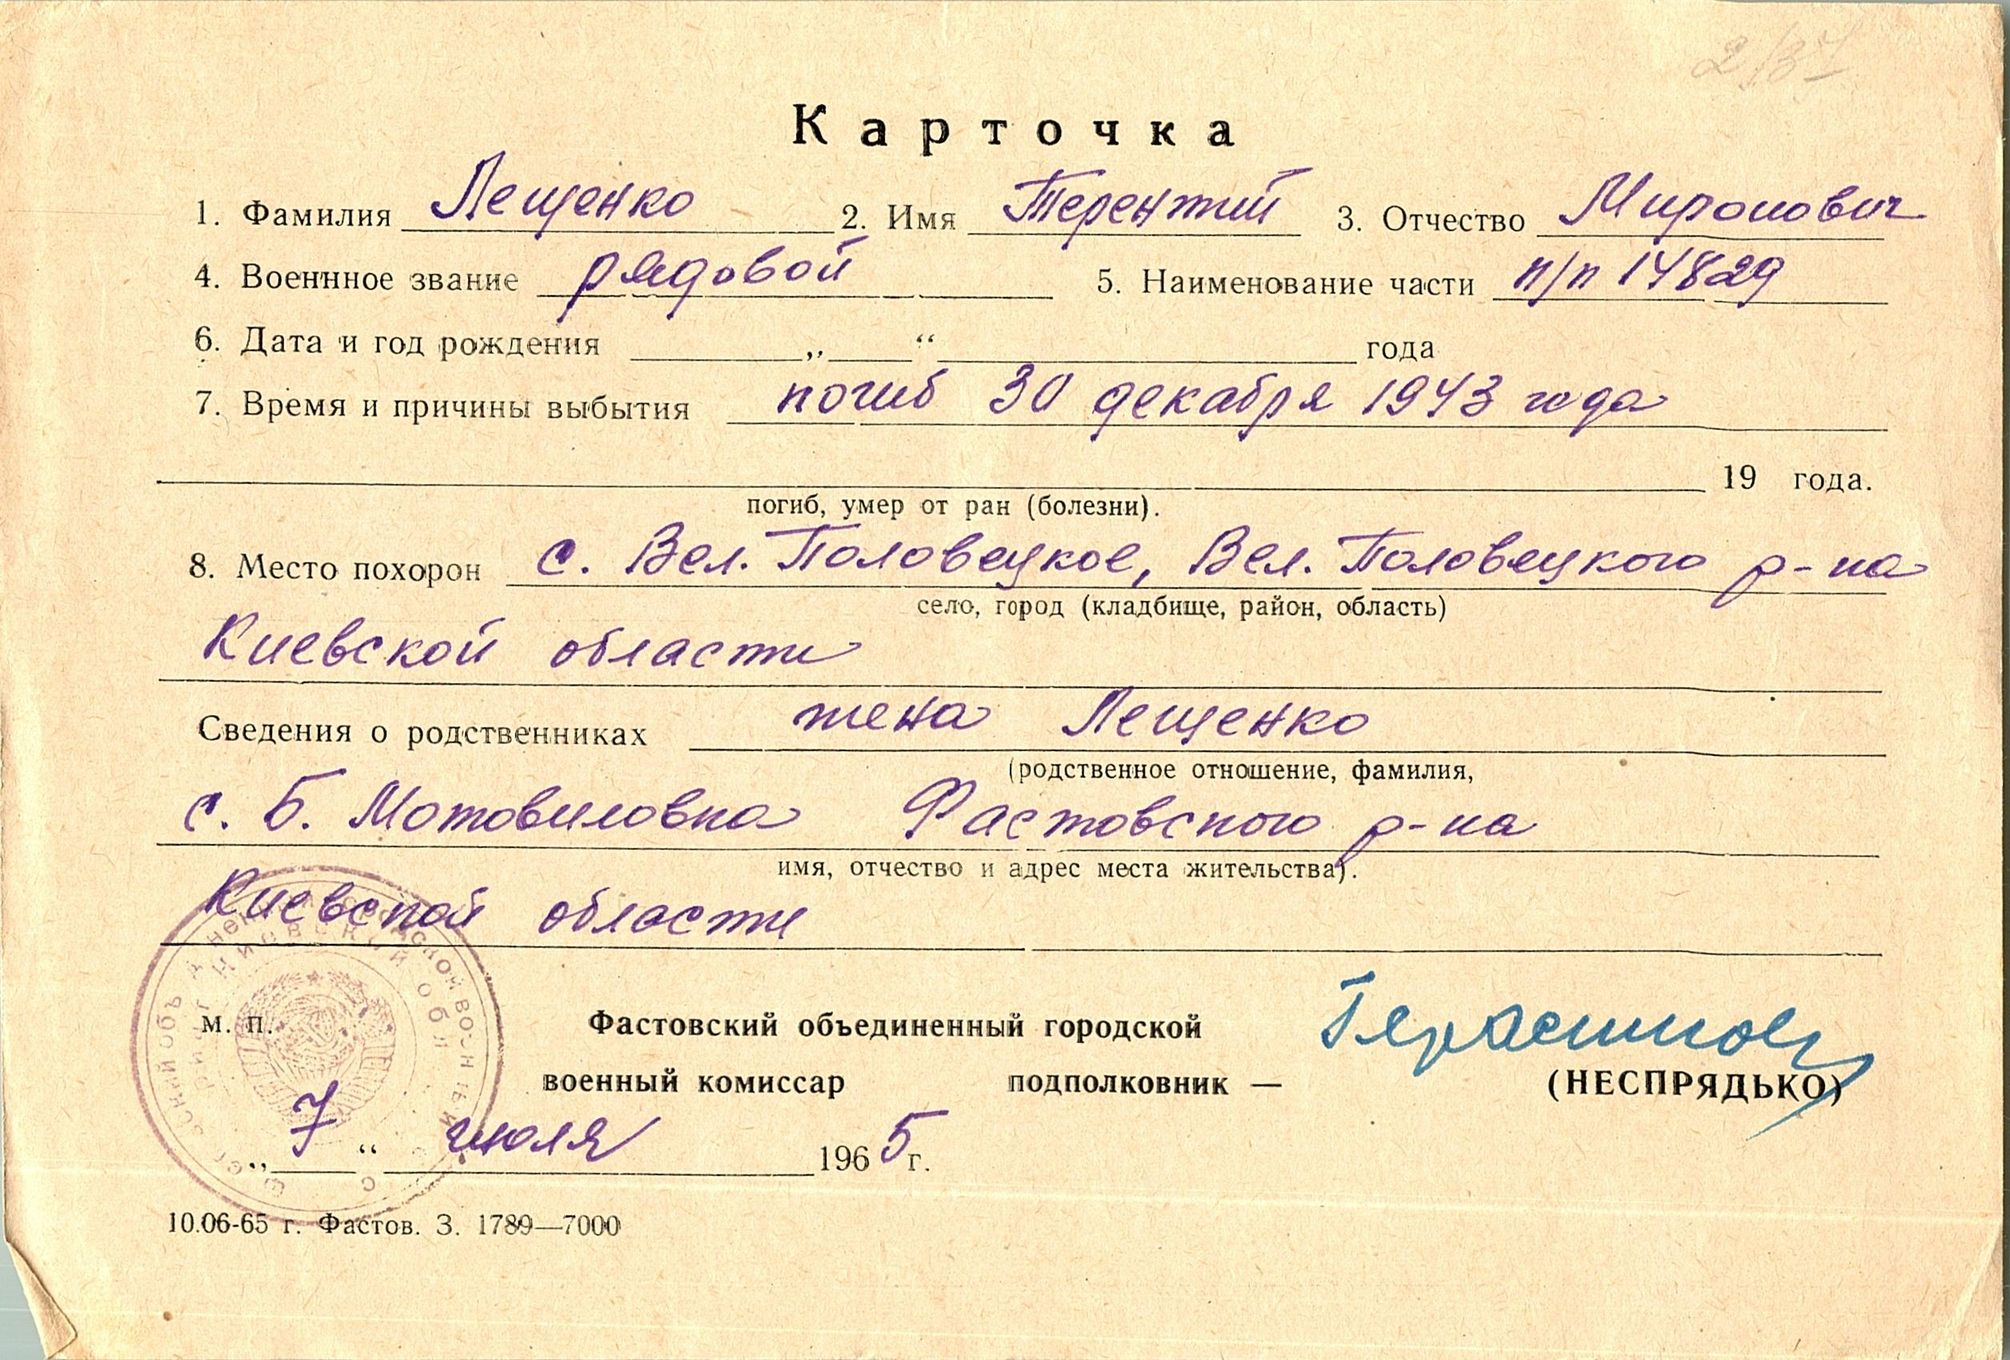 Карточка
1. Фамилия Лещенко 2. Имя Терентий 3. Отчество Миронович
4. Военное звание рядовой 5. Наименование части п/п 14829
6. Дата и год рождения „ “ года
7. Время и причины выбытия погиб 30 декабря 1943 года
19 года.
погиб, умер от ран (болезни).
8. Место похорон с. Вел. Половецкое, Вел. Половецкого р-на
село, город (кладбище, район, область)
Киевской области
Сведения о родственниках жена Лещенко
(родственное отношение, фамилия,
с. Б. Мотовиловка Фастовского р-на
имя, отчество и адрес места жительства).
Киевской области
м. п. Фастовский объединенный городской
военный комиссар подполковник — (НЕСПРЯДЬКО)
„ 7 “ июля 1965 г.
10.06-65 г. Фастов. З. 1789—7000